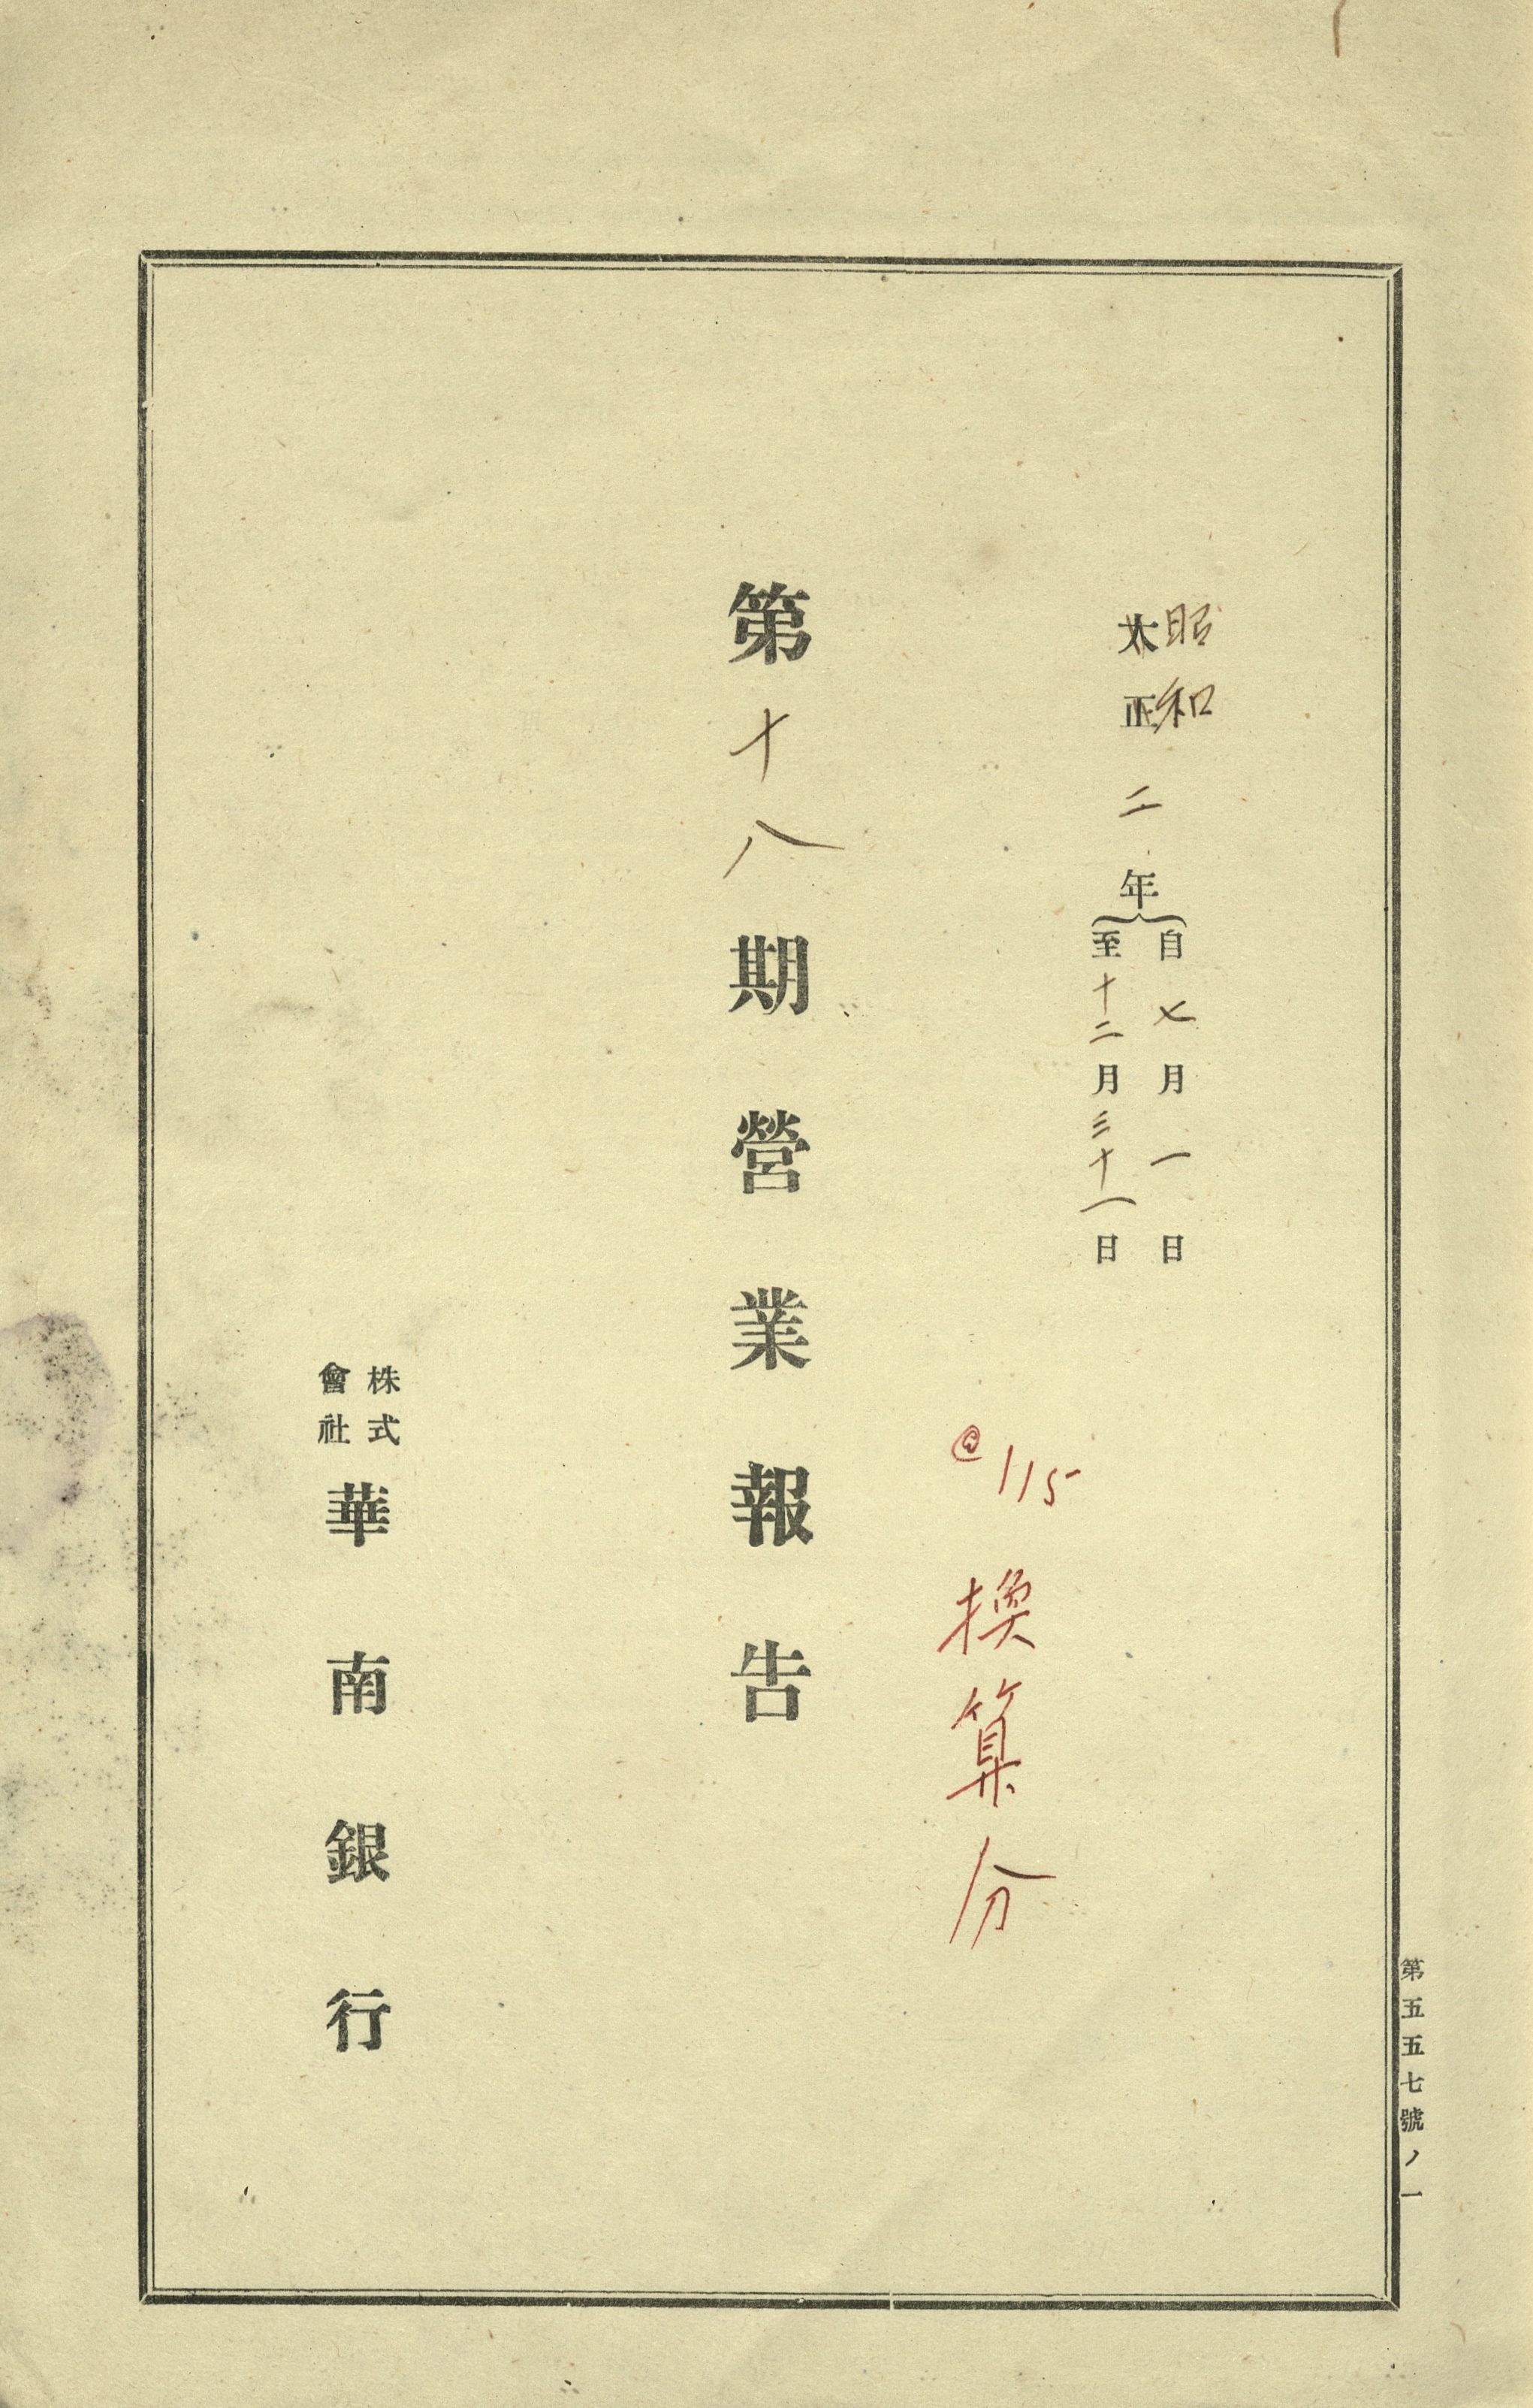 昭和
大正二年
自七月一日
至十二月三十一日
@115 換算分
第十八期營業報告
株式
會社
華南銀行
第五五七號ノ一